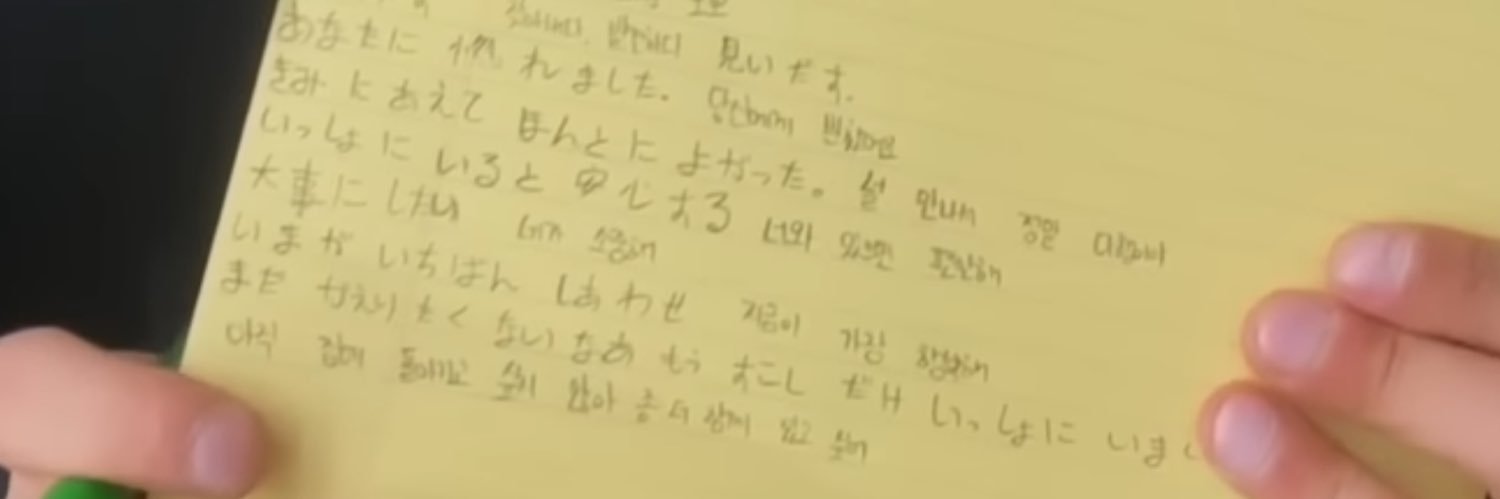 찾아내다, 발견하다 見いだす.
あなたに 惚れました. 당신에게 반했어요
きみ に あえて ほんとに よかった。 널 만나서 정말 다행이야
いっしょに いると 安心する 너와 있으면 편안해
大事に したい 너가 소중해
いまが いちばん しあわせ 지금이 가장 행복해
まだ かえりたく ないなあ もう すこし だけ いっしょに いま
아직 집에 돌아가고 싶지 않아 좀 더 함께 있고 싶어